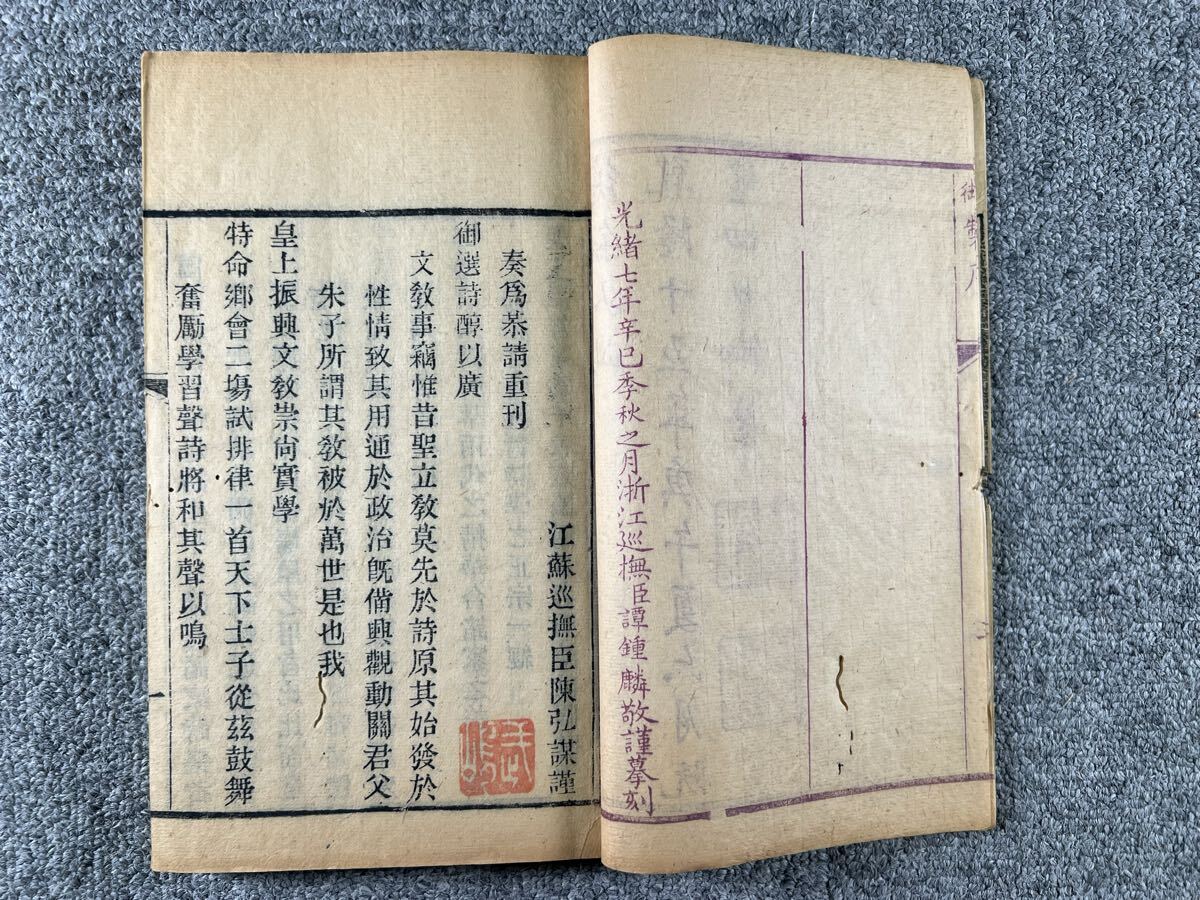 御製
光緒七年辛巳季秋之月浙江巡撫臣譚鍾麟敬謹摹刻
江蘇巡撫臣陳弘謀謹
奏爲恭請重刊
御選詩醇以廣
文敎事竊惟昔聖立敎莫先於詩原其始發於
性情致其用通於政治旣僃興觀動關君父
朱子所謂其敎被於萬世是也我
皇上振興文敎崇尙實學
特命鄉會二塲試排律一首天下士子從兹鼓舞
奮勵學習聲詩將和其聲以鳴
一